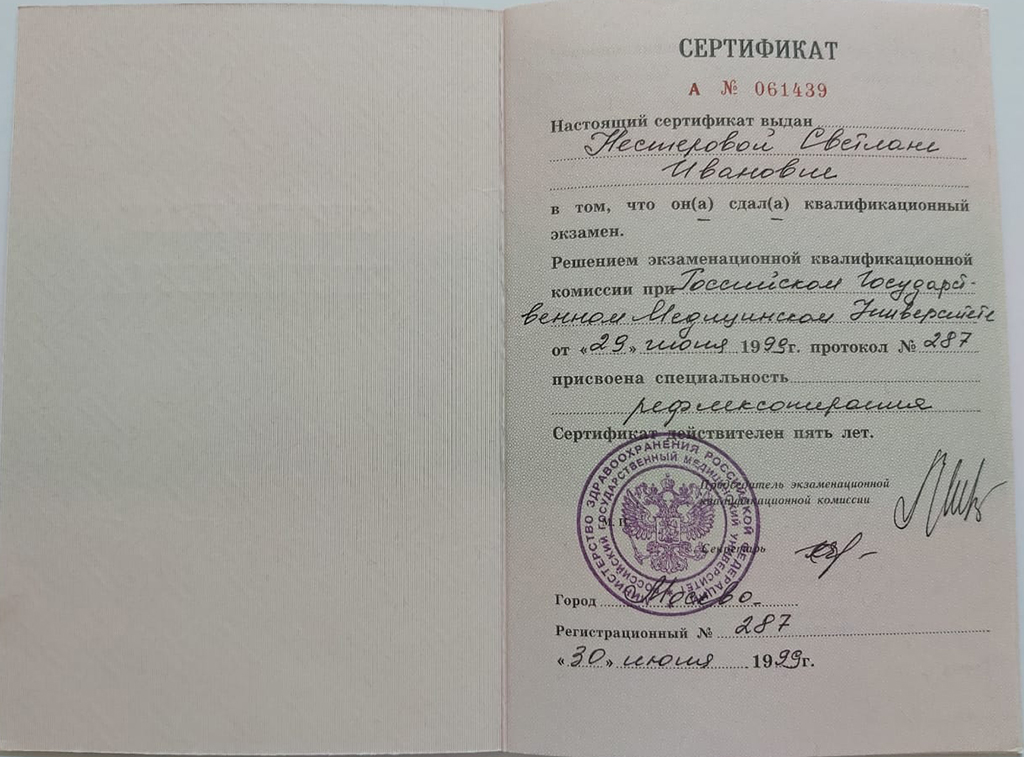 СЕРТИФИКАТ
А № 061439
Настоящий сертификат выдан
Нестеровой Светлане
Ивановне
в том, что он(а) сдал(а) квалификационный
экзамен.
Решением экзаменационной квалификационной
комиссии при Российском Государст-
венном Медицинском Университете
от «29» июня 1999г. протокол № 287
присвоена специальность
рефлексотерапия
Сертификат действителен пять лет.
Председатель экзаменационной
квалификационной комиссии
М. П.
Секретарь
МИНИСТЕРСТВО ЗДРАВООХРАНЕНИЯ РОССИЙСКОЙ ФЕДЕРАЦИИ
РОССИЙСКИЙ ГОСУДАРСТВЕННЫЙ МЕДИЦИНСКИЙ УНИВЕРСИТЕТ
Город Москва
Регистрационный № 287
«30» июня 1999г.